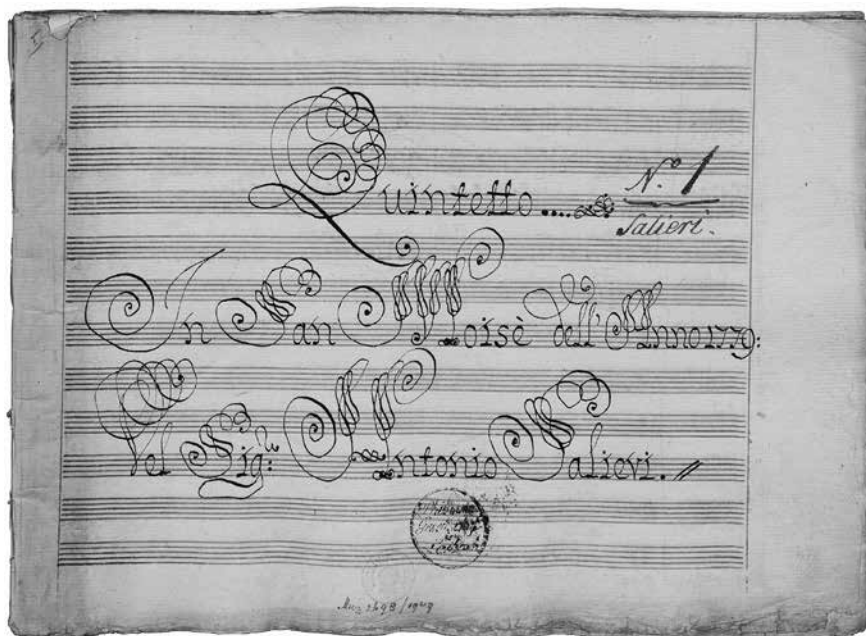 Quintetto....
N.º 1
Salieri.
In San Moisè dell'Anno 1779:
Del Sig:re Antonio Salieri.